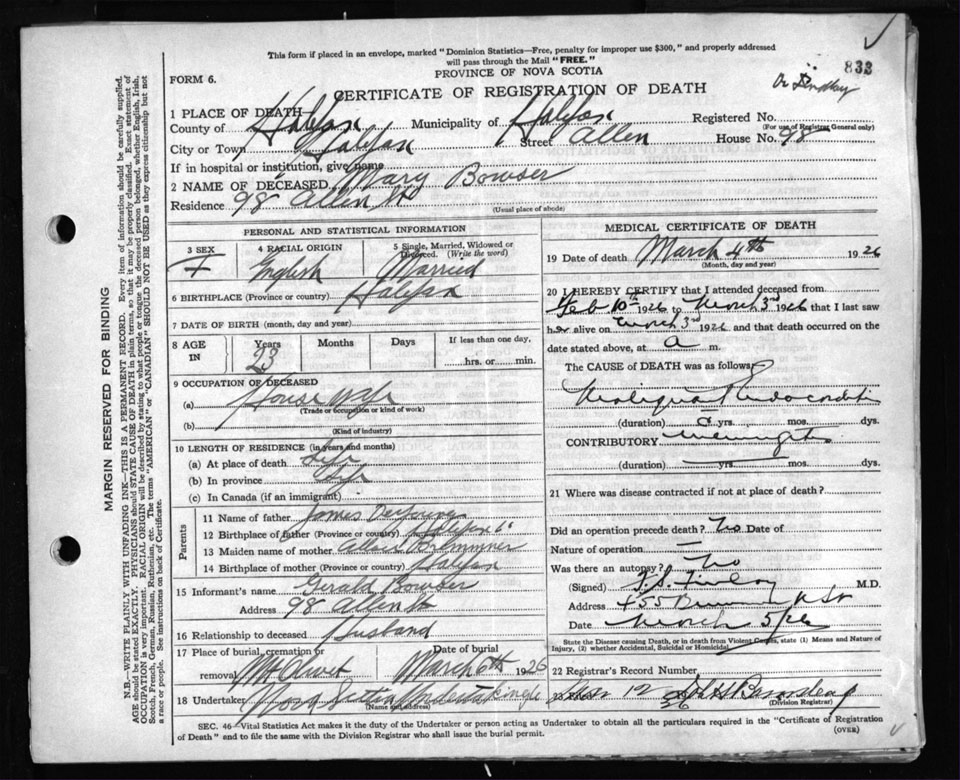 This form if placed in an envelope, marked "Dominion Statistics—Free, penalty for improper use $300," and properly addressed
will pass through the Mail "FREE."
PROVINCE OF NOVA SCOTIA
833
FORM 6.
CERTIFICATE OF REGISTRATION OF DEATH
1 PLACE OF DEATH
County of Halifax Municipality of Halifax Registered No.
(For use of Registrar General only)
City or Town Halifax Street Allen House No. 98
If in hospital or institution, give name
2 NAME OF DECEASED Mary Bowser
Residence 98 Allen St
(Usual place of abode)
MARGIN RESERVED FOR BINDING
N.B.—WRITE PLAINLY WITH UNFADING INK—THIS IS A PERMANENT RECORD. Every item of information should be carefully supplied.
AGE should be stated EXACTLY. PHYSICIANS should STATE CAUSE OF DEATH in plain terms, so that it may be properly classified. Exact statement of
OCCUPATION is very important. RACIAL ORIGIN will be described by stating to what people or tongue the deceased person belonged, whether English, Irish,
Scotch, French, German, Russian, Ruthenian, etc. The terms "AMERICAN" or "CANADIAN" SHOULD NOT BE USED as they express citizenship but not
a race or people. See instructions on back of Certificate.
PERSONAL AND STATISTICAL INFORMATION
3 SEX 4 RACIAL ORIGIN 5 Single, Married, Widowed or
Divorced. (Write the word)
F English Married
6 BIRTHPLACE (Province or country) Halifax
7 DATE OF BIRTH (month, day and year)
8 AGE IN Years Months Days If less than one day,
23 hrs. or min.
9 OCCUPATION OF DECEASED
(a) House Wife
(Trade or occupation or kind of work)
(b)
(Kind of industry)
10 LENGTH OF RESIDENCE (in years and months)
(a) At place of death Life
(b) In province Life
(c) In Canada (if an immigrant)
Parents
11 Name of father James DeYoung
12 Birthplace of father (Province or country) Halifax
13 Maiden name of mother
14 Birthplace of mother (Province or country) Halifax
15 Informant's name Gerald Bowser
Address 98 Allen St
16 Relationship to deceased Husband
17 Place of burial, cremation or Date of burial
removal Mt Olivet March 6th 1926
18 Undertaker
(Name and address)
MEDICAL CERTIFICATE OF DEATH
19 Date of death March 4th 1926
(Month, day and year)
20 I HEREBY CERTIFY that I attended deceased from
Feb 10th 1926 to March 3rd 1926 that I last saw
her alive on March 3rd 1926 and that death occurred on the
date stated above, at a m.
The CAUSE OF DEATH was as follows
Malignant Endocarditis
(duration) yrs. mos. dys.
CONTRIBUTORY Meningitis
(duration) yrs. mos. dys.
21 Where was disease contracted if not at place of death?
Did an operation precede death? No Date of
Nature of operation —
Was there an autopsy? No
(Signed) M.D.
Address 455
Date March 5/26
State the Disease causing Death, or in death from Violent Causes, state (1) Means and Nature of
Injury, (2) whether Accidental, Suicidal or Homicidal.
22 Registrar's Record Number
23
(Division Registrar)
SEC. 46—Vital Statistics Act makes it the duty of the Undertaker or person acting as Undertaker to obtain all the particulars required in the "Certificate of Registration
of Death" and to file the same with the Division Registrar who shall issue the burial permit.
(OVER)